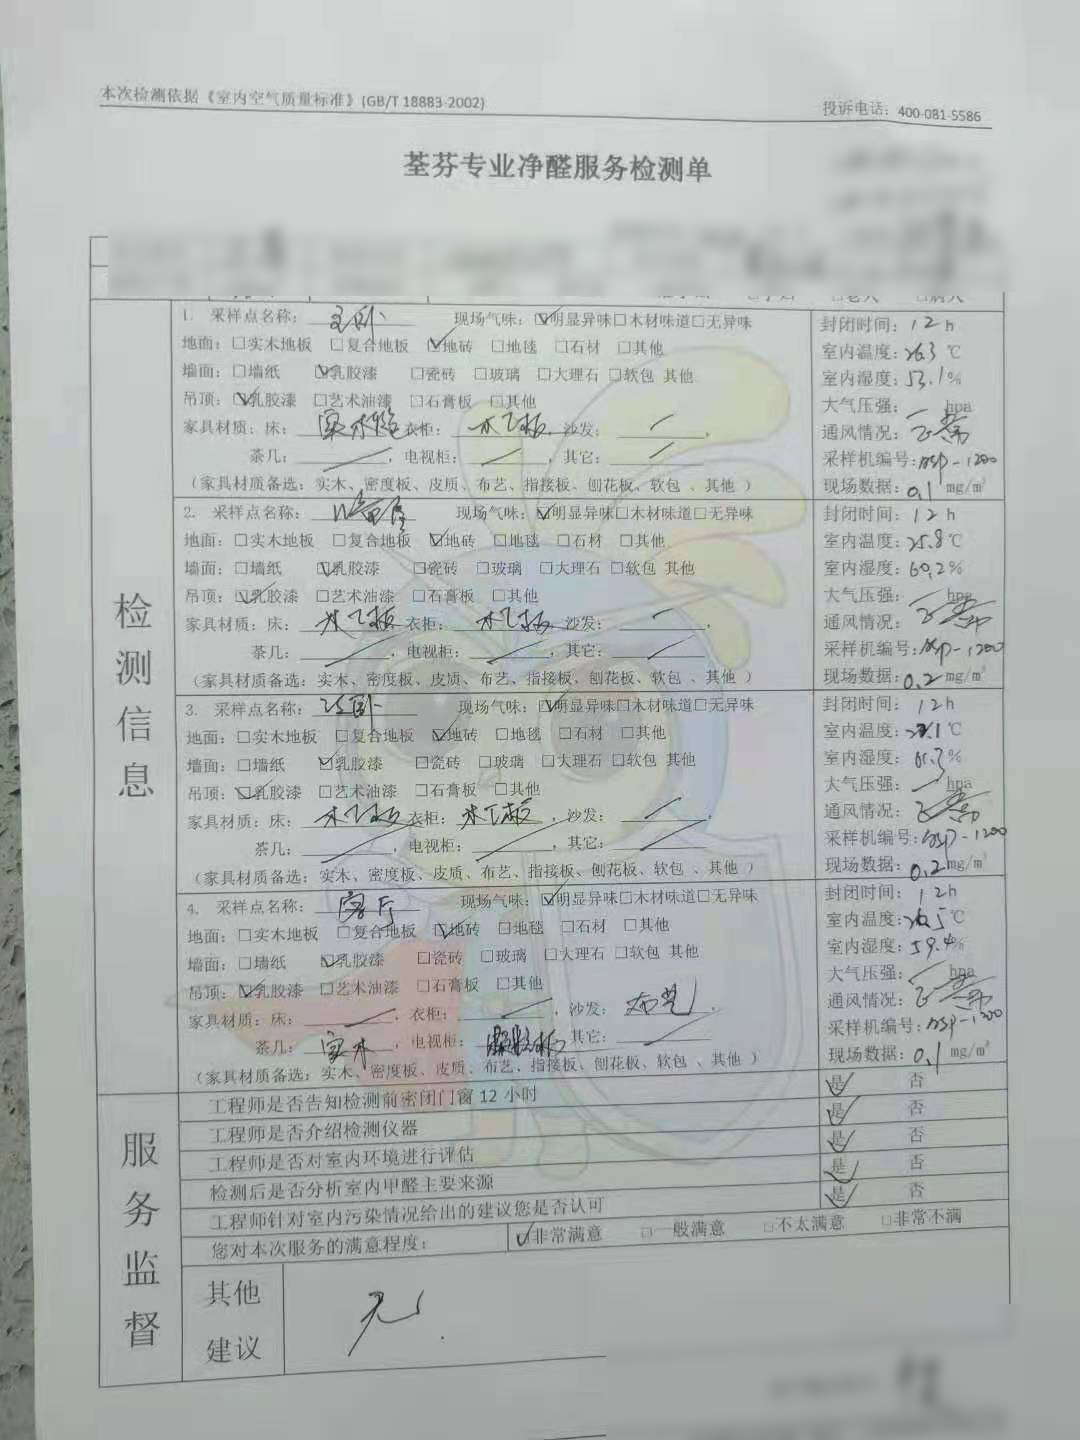 本次检测依据《室内空气质量标准》(GB/T 18883-2002)
投诉电话：400-081-5586
荃芬专业净醛服务检测单
检测信息
1. 采样点名称：主卧 现场气味：☑明显异味□木材味道□无异味
地面：□实木地板 □复合地板 ☑地砖 □地毯 □石材 □其他
墙面：□墙纸 ☑乳胶漆 □瓷砖 □玻璃 □大理石 □软包 其他
吊顶：☑乳胶漆 □艺术油漆 □石膏板 □其他
家具材质：床：实木 衣柜：木工板 沙发：／，
茶几：／，电视柜：／，其它：／
（家具材质备选：实木、密度板、皮质、布艺、指接板、刨花板、软包 、其他 ）
封闭时间：12h
室内温度：26.3 ℃
室内湿度：53.1%
大气压强：— hpa
通风情况：正常
采样机编号：NSP-1200
现场数据：0.1 mg/m³
2. 采样点名称： 现场气味：☑明显异味□木材味道□无异味
地面：□实木地板 □复合地板 ☑地砖 □地毯 □石材 □其他
墙面：□墙纸 ☑乳胶漆 □瓷砖 □玻璃 □大理石 □软包 其他
吊顶：☑乳胶漆 □艺术油漆 □石膏板 □其他
家具材质：床：木工板 衣柜：木工板 沙发：／
茶几：／，电视柜：／，其它：／
（家具材质备选：实木、密度板、皮质、布艺、指接板、刨花板、软包 、其他 ）
封闭时间：12h
室内温度：25.8℃
室内湿度：60.2%
大气压强：— hpa
通风情况：正常
采样机编号：NSP-1200
现场数据：0.2 mg/m³
3. 采样点名称：次卧 现场气味：☑明显异味□木材味道□无异味
地面：□实木地板 □复合地板 ☑地砖 □地毯 □石材 □其他
墙面：□墙纸 ☑乳胶漆 □瓷砖 □玻璃 □大理石 □软包 其他
吊顶：☑乳胶漆 □艺术油漆 □石膏板 □其他
家具材质：床：木工板 衣柜：木工板，沙发：／
茶几：／，电视柜：／，其它：／
（家具材质备选：实木、密度板、皮质、布艺、指接板、刨花板、软包 、其他 ）
封闭时间：12h
室内温度： ℃
室内湿度：61.3%
大气压强：— hpa
通风情况：正常
采样机编号：NSP-1200
现场数据：0.2 mg/m³
4. 采样点名称：客厅 现场气味：☑明显异味□木材味道□无异味
地面：□实木地板 □复合地板 ☑地砖 □地毯 □石材 □其他
墙面：□墙纸 ☑乳胶漆 □瓷砖 □玻璃 □大理石 □软包 其他
吊顶：☑乳胶漆 □艺术油漆 □石膏板 □其他
家具材质：床：／，衣柜：／，沙发：布艺，
茶几：实木，电视柜： 其它：／
（家具材质备选：实木、密度板、皮质、布艺、指接板、刨花板、软包 、其他 ）
封闭时间：12h
室内温度：26.5℃
室内湿度：59.4%
大气压强：— hpa
通风情况：正常
采样机编号：NSP-1200
现场数据：0.1 mg/m³
服务监督
工程师是否告知检测前密闭门窗 12 小时 是✓ 否
工程师是否介绍检测仪器 是✓ 否
工程师是否对室内环境进行评估 是✓ 否
检测后是否分析室内甲醛主要来源 是✓ 否
工程师针对室内污染情况给出的建议您是否认可 是✓ 否
您对本次服务的满意程度： ☑非常满意 □一般满意 □不太满意 □非常不满
其他
建议
无